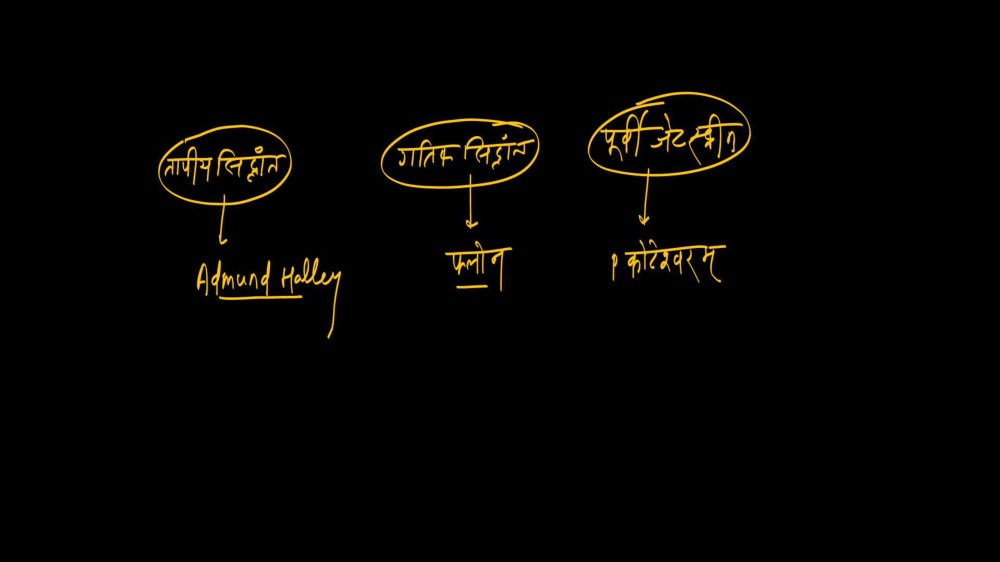 तापीय सिद्धांत
गतिक सिद्धांत
पूर्वी जेट स्ट्रीम
Admund Halley
फ्लोन
P कोटेश्वरम